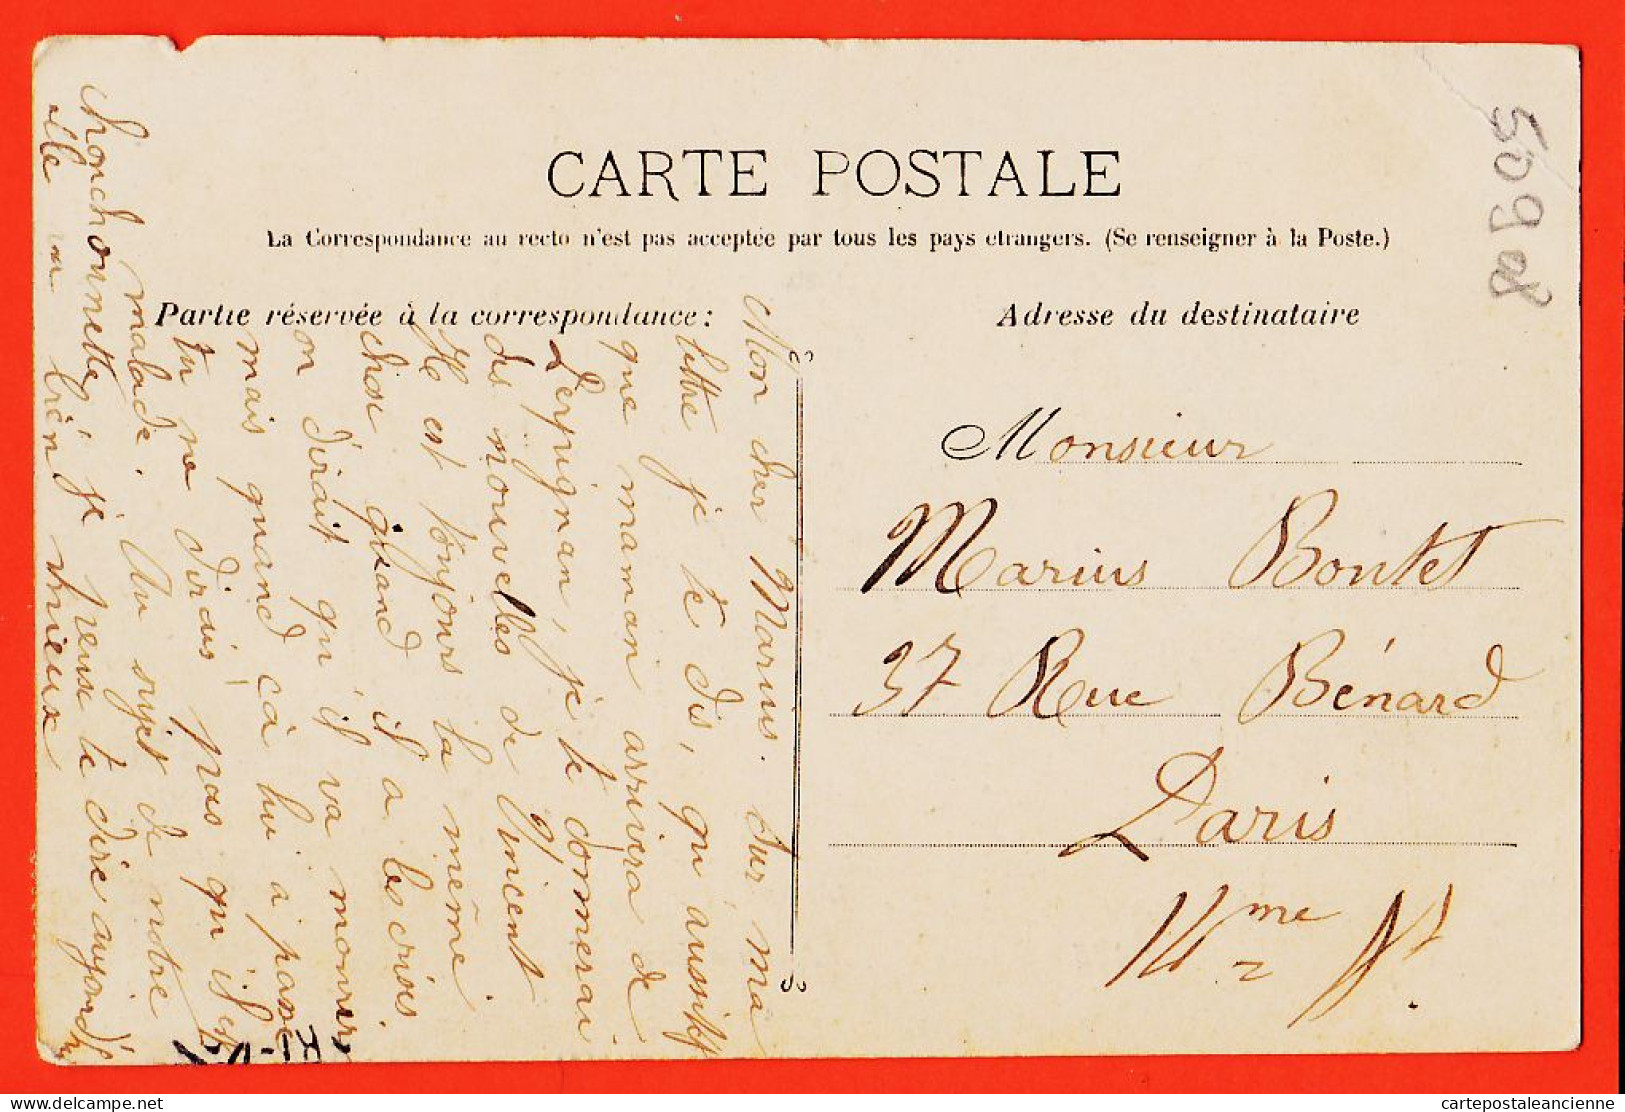 CARTE POSTALE
La Correspondance au recto n'est pas acceptée par tous les pays étrangers. (Se renseigner à la Poste.)
Partie réservée à la correspondance:
Adresse du destinataire
Mon cher Marius. Sur ma
lettre je te dis, qu'aussitôt
que maman arrivera de
Perpignan, je te donnerai
des nouvelles de Vincent
Il est toujours la même
chose quand il a les crises
on dirait qu'il va mourir
mais quand ça lui a passé
tu ne dirais pas qu'il est
malade. Au sujet de notre
chonchonnette, je peuse te dire aujourd'h
elle va bien mieux
Monsieur
Marius Bontet
37 Rue Bénard
Paris
14me
50908
cartepostaleancienne
cartepostaleancienne.com